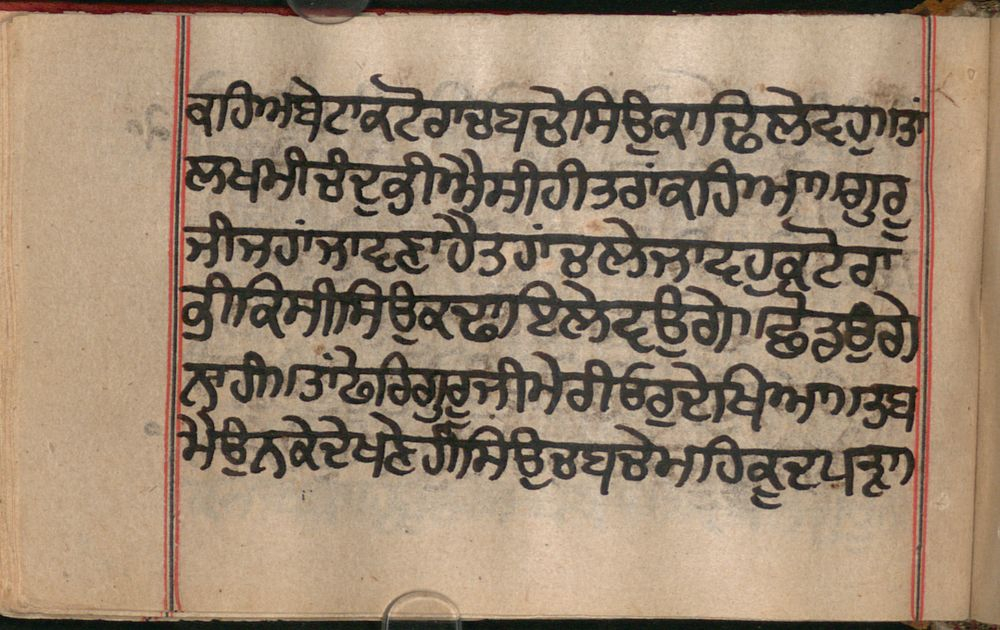 ਕਹਿਅਬੇਟਾਕਟੋਰਾਚਬਚੇਸਿਉਕਾਢਿਲੇਵਹੁ॥ਤਾਂ
ਲਖਮੀਚੰਦਕੀਐਸੀਹੀਤਰਾਂਕਹਿਆ॥ਗੁਰੂ
ਜੀਜਹਾਂਜਾਵਣਾਹੈਤਹਾਂਚਲੇਜਾਵਹੁਕਟੋਰਾ
ਕੀਕਿਸੀਸਿਉਕਢਾਇਲੇਵਉਗੇ॥ਛੋਡਉਗੇ
ਨਾਹੀ॥ਤਾਂਫੇਰਿਗੁਰੂਜੀਮੇਰੀਓਰੁਦੇਖਿਆ॥ਤਬ
ਮੈਉਨਕੇਦੇਖਣੇਹੀਸਿਉਚਬਚੇਮਹਿਕੂਦਪੜਾ